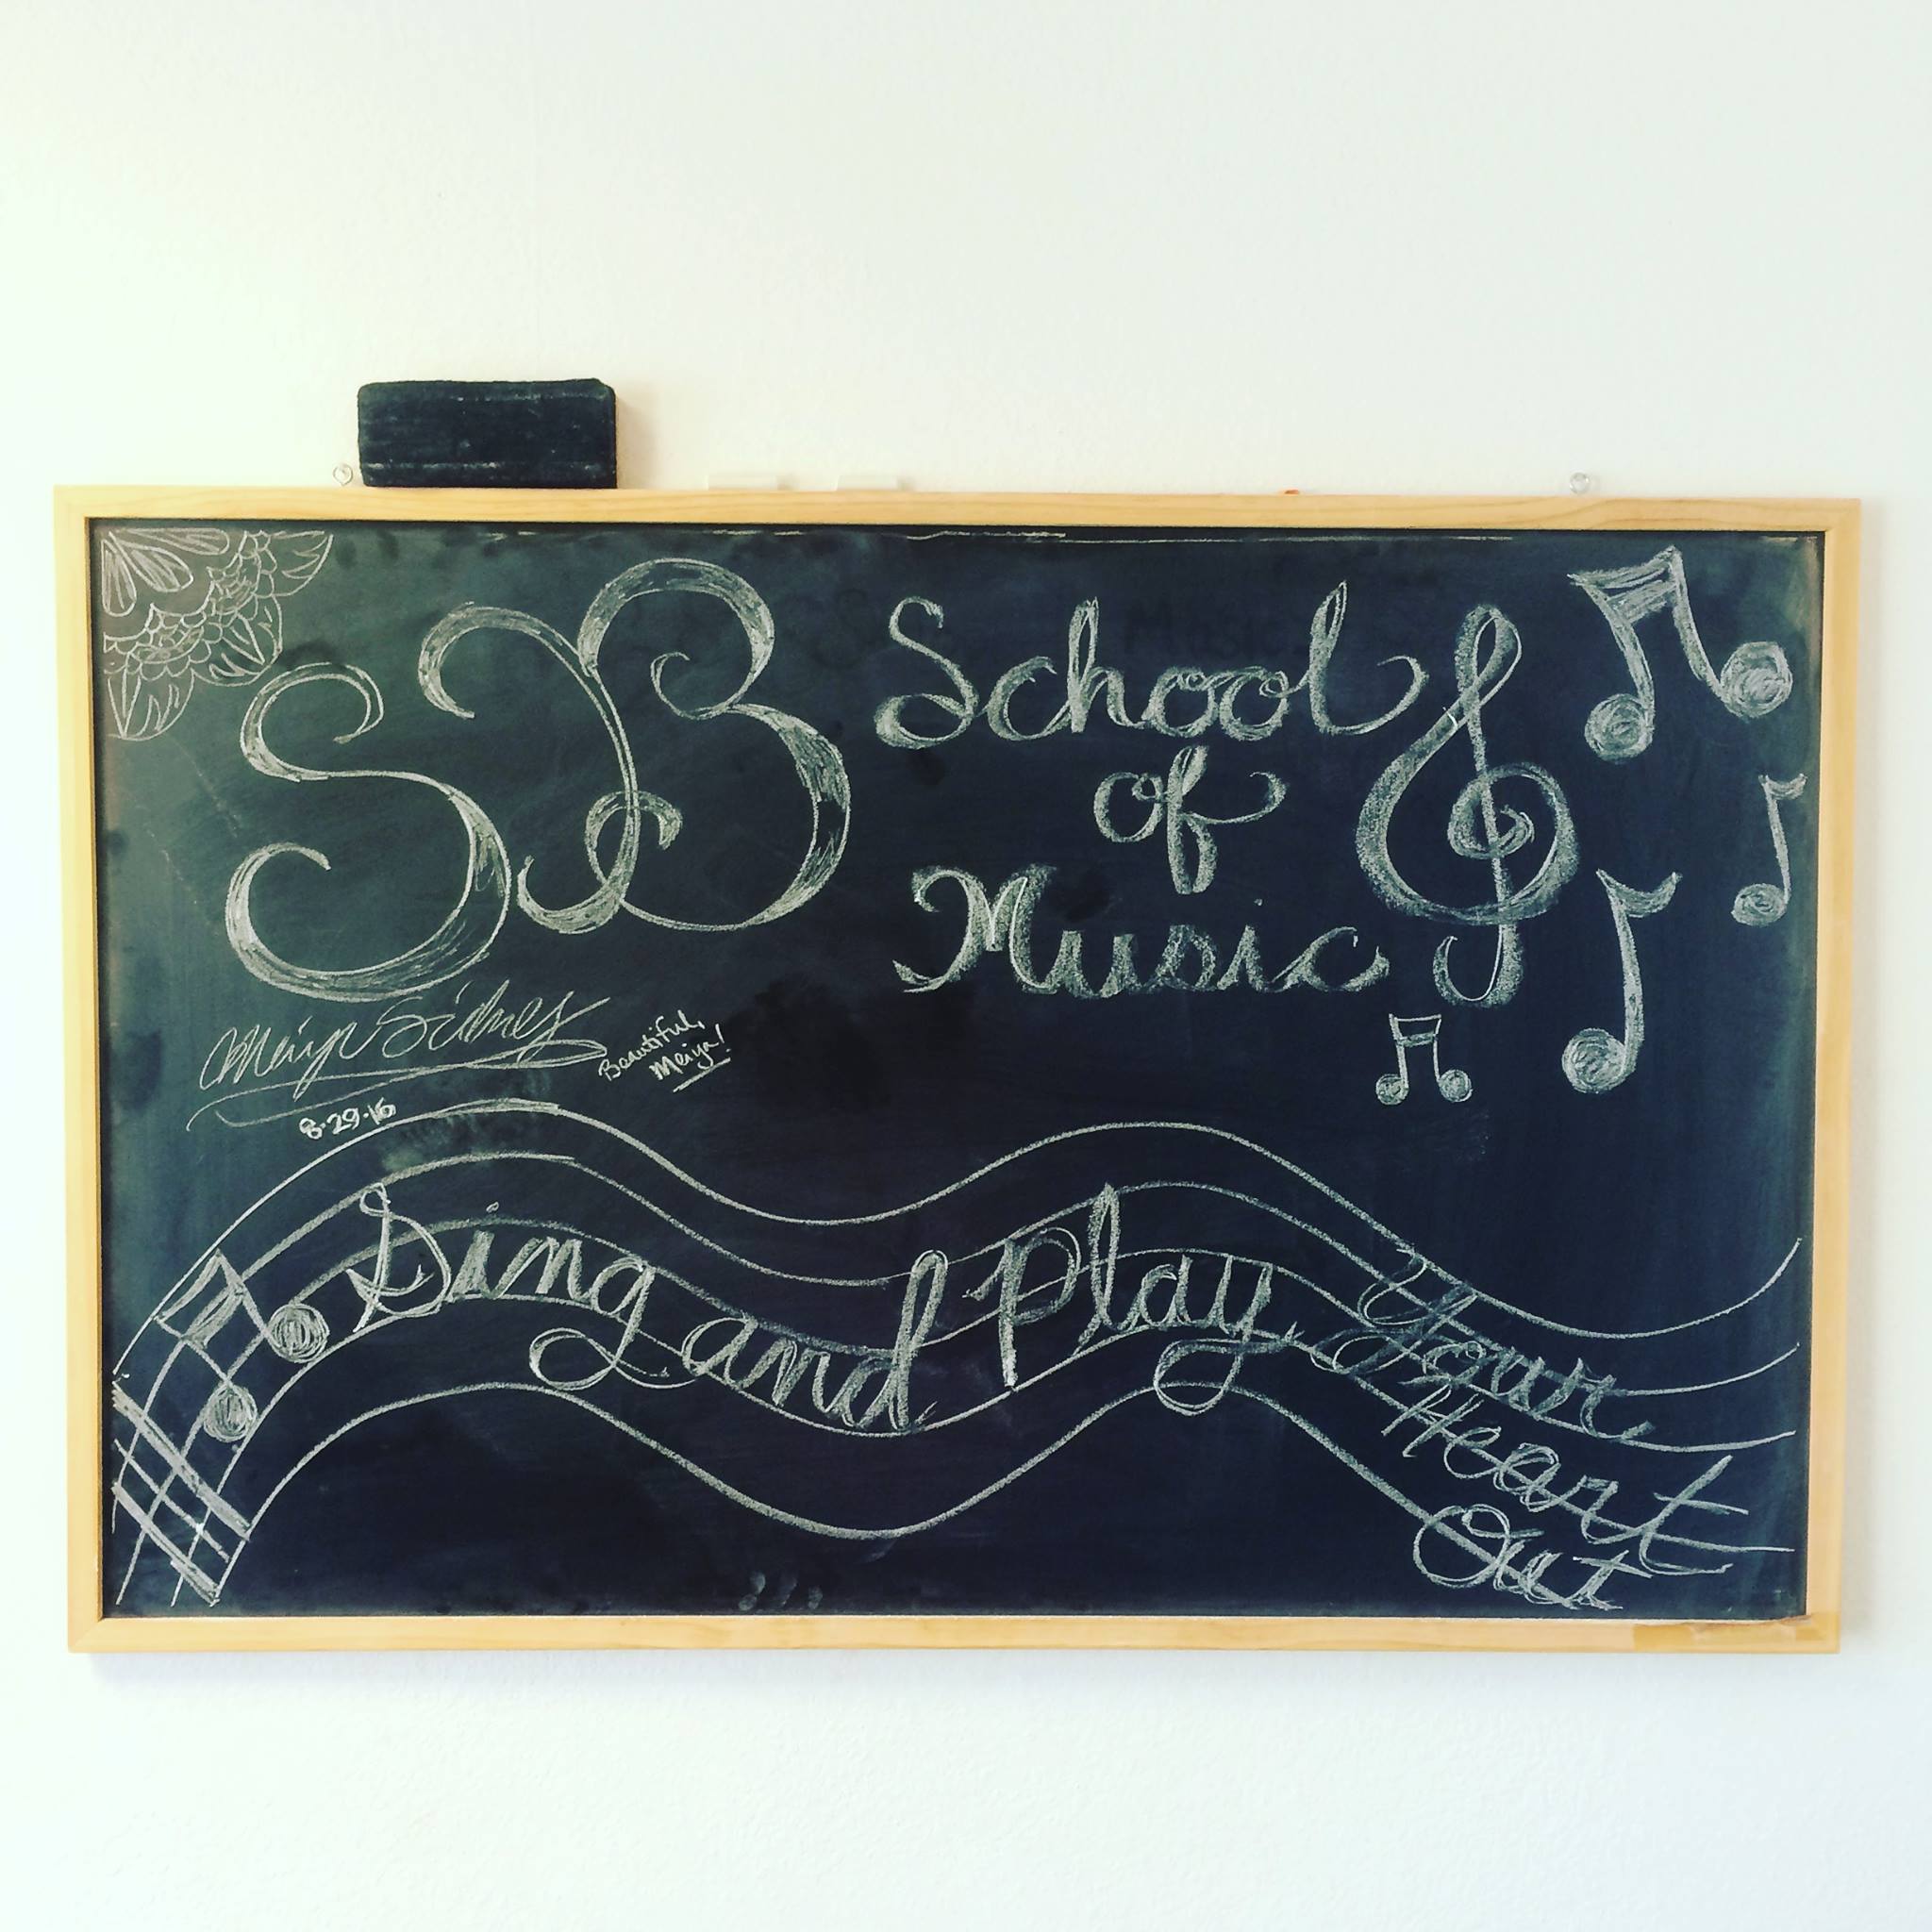 SB School
of
Music
Meiya Sidney
Beautiful,
Meiya!
8-29-16
Sing and Play Your
Heart
Out